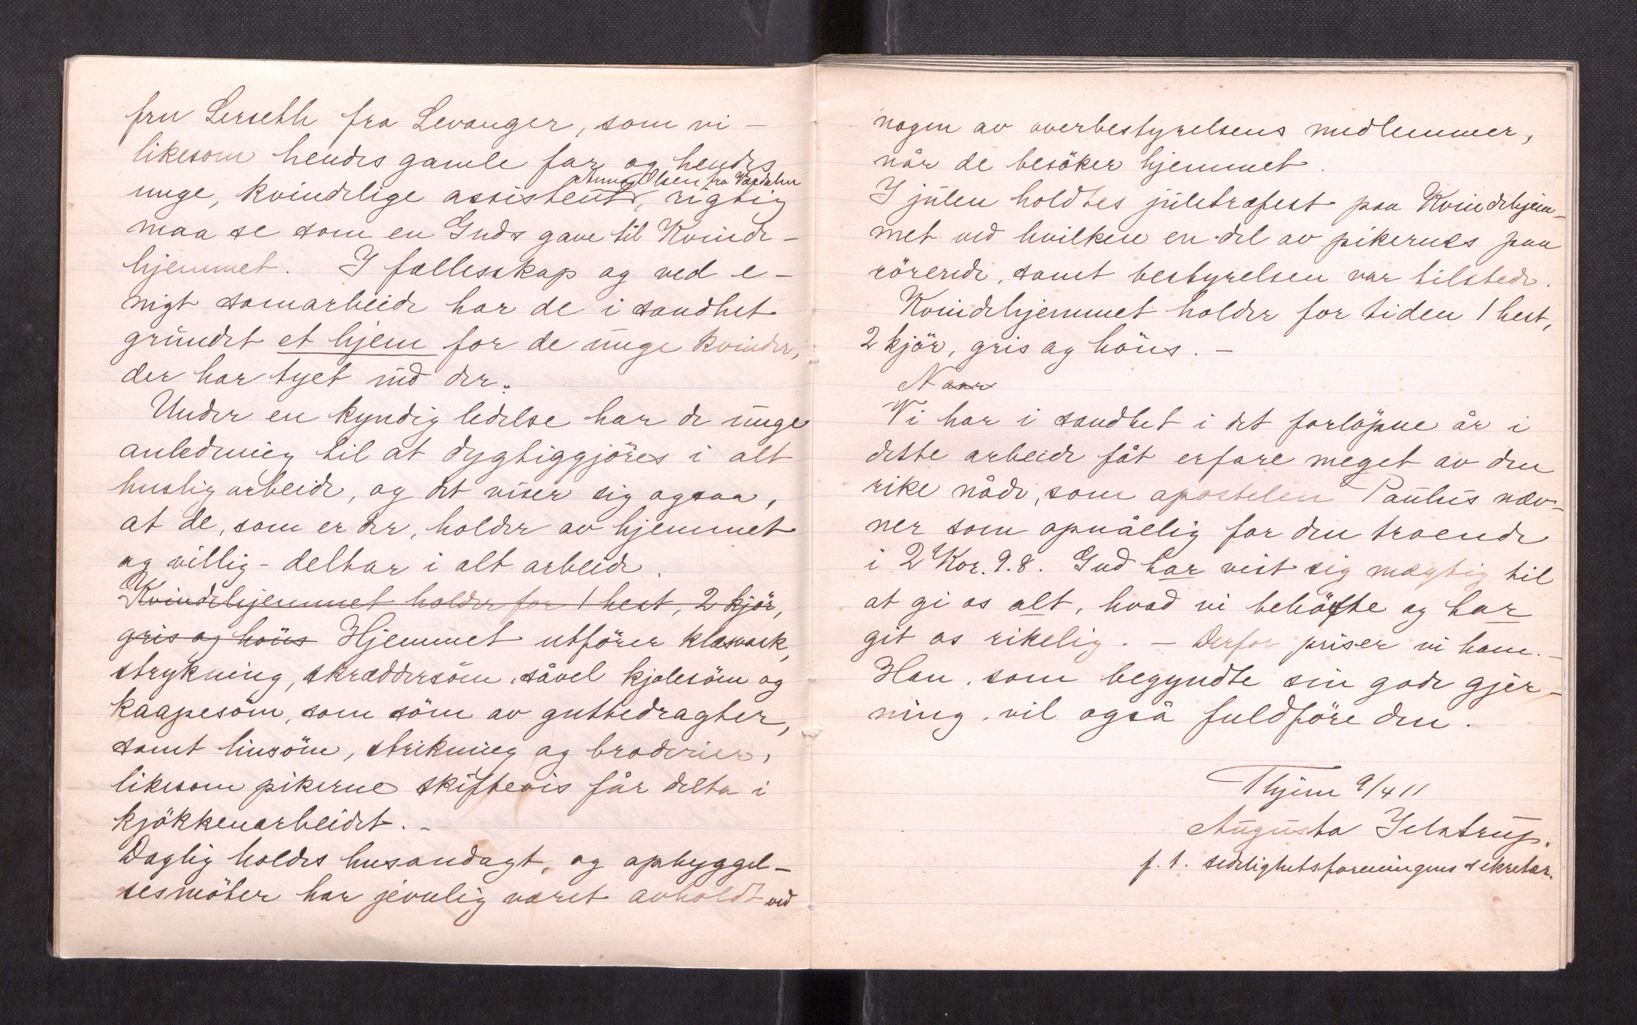 fru Lerseth fra Levanger, som vi –
likesom hendes gamle far og hendes
Anna Olsen fra Værdalen
unge, kvindelige assistent, rigtig
maa se som en Guds gave til Kvinde-
hjemmet. I fællesskap og ved e-
nigt samarbeide har de i sandhet
grundet et hjem for de unge kvinder,
der har tyet ind der.
Under en kyndig ledelse har de unge
anledning til at dygtiggjöres i alt
huslig arbeide, og det viser sig ogsaa,
at de, som er der, holder av hjemmet
og villig deltar i alt arbeide.
Kvindehjemmet holder for 1 hest, 2 kjör,
gris og höns Hjemmet utförer klæsvask,
strykning, skræddersöm, såvel kjolesöm og
kaapesöm, som söm av guttedragter,
samt linsöm, strikning og broderier,
likesom pikerne skiftevis får delta i
kjökkenarbeidet. –
Daglig holdes husandagt, og opbyggel-
sesmöter har jevnlig været avholdt ved
nogen av overbestyrelsens medlemmer,
når de besöker hjemmet.
I julen holdtes juletræfest paa Kvindehjem-
met ved hvilken en del av pikernes paa
rörende, samt bestyrelsen var tilstede.
Kvindehjemmet holder for tiden 1 hest,
2 kjör, gris og höns. –
Naar
Vi har i sandhet i det forlöpne år i
dette arbeide fåt erfare meget av den
rike nåde, som apostelen Paulus næv-
ner som opnåelig for den troende
i 2 Kor. 9.8. Gud har vist sig mægtig til
at gi os alt, hvad vi behöfte og har
git os rikelig. – Derfor priser vi ham. –
Han, som begyndte sin gode gjer-
ning, vil også fuldföre den.
Thjem 9/4 11
Augusta Jelstrup.
f. t. sedelighetsforeningens sekretær.